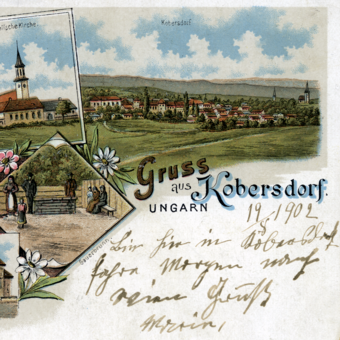 lische Kirche.
Kobersdorf.
Gruss
aus Kobersdorf.
UNGARN
19 1902
Bin hier in Kobersdorf
fahre Morgen nach
Gruß